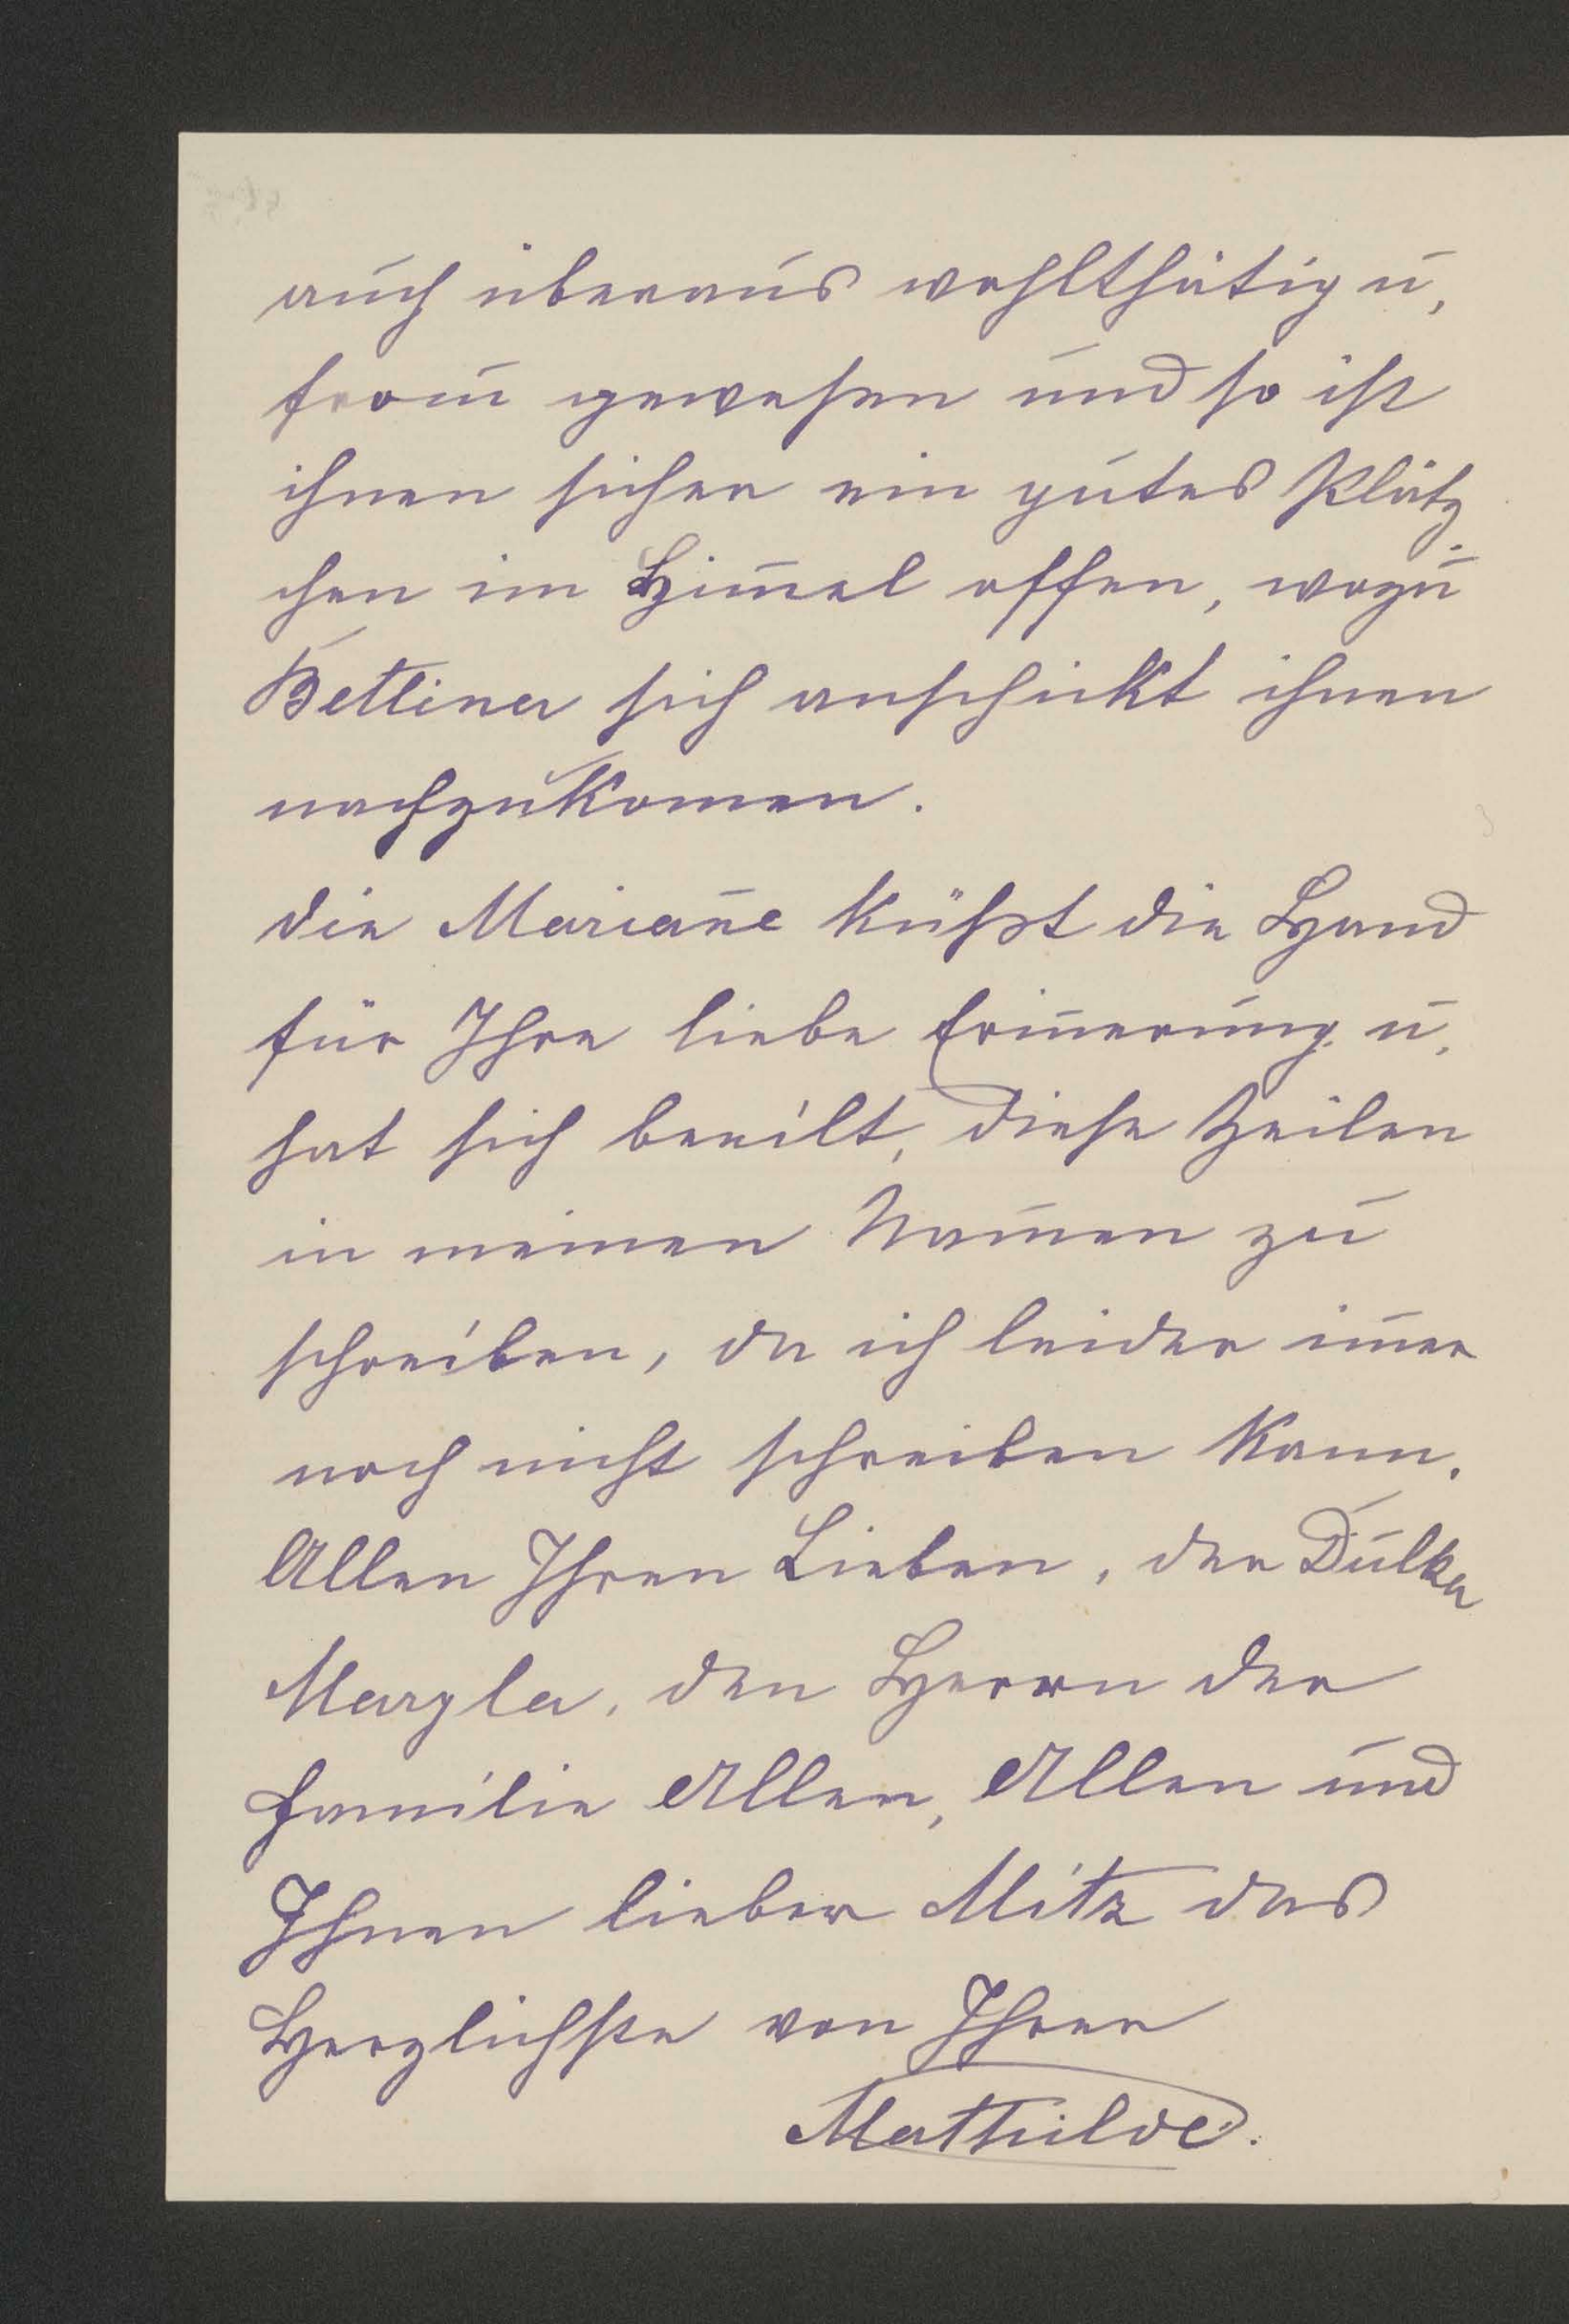 auch überaus wohlthätig u,
from̄ gewesen und so ist
ihnen sicher ein gutes Plätz
chen im Him̄el offen, wozu
Bettina sich anschickt ihnen
nachzukomen.
die Marian̄e küßt die Hand
für Ihre liebe Erin̄erung u,
hat sich beeilt, diese Zeilen
in meinen Nam̄en zu
schreiben, da ich leider im̄er
noch nicht schreiben kann.
Allen Ihren Lieben, der Dulka
Margla, den Herrn der
Familie Allen, Allen und
Ihnen lieber Mitz das
Herzlichste von Ihrer
Mathilde.